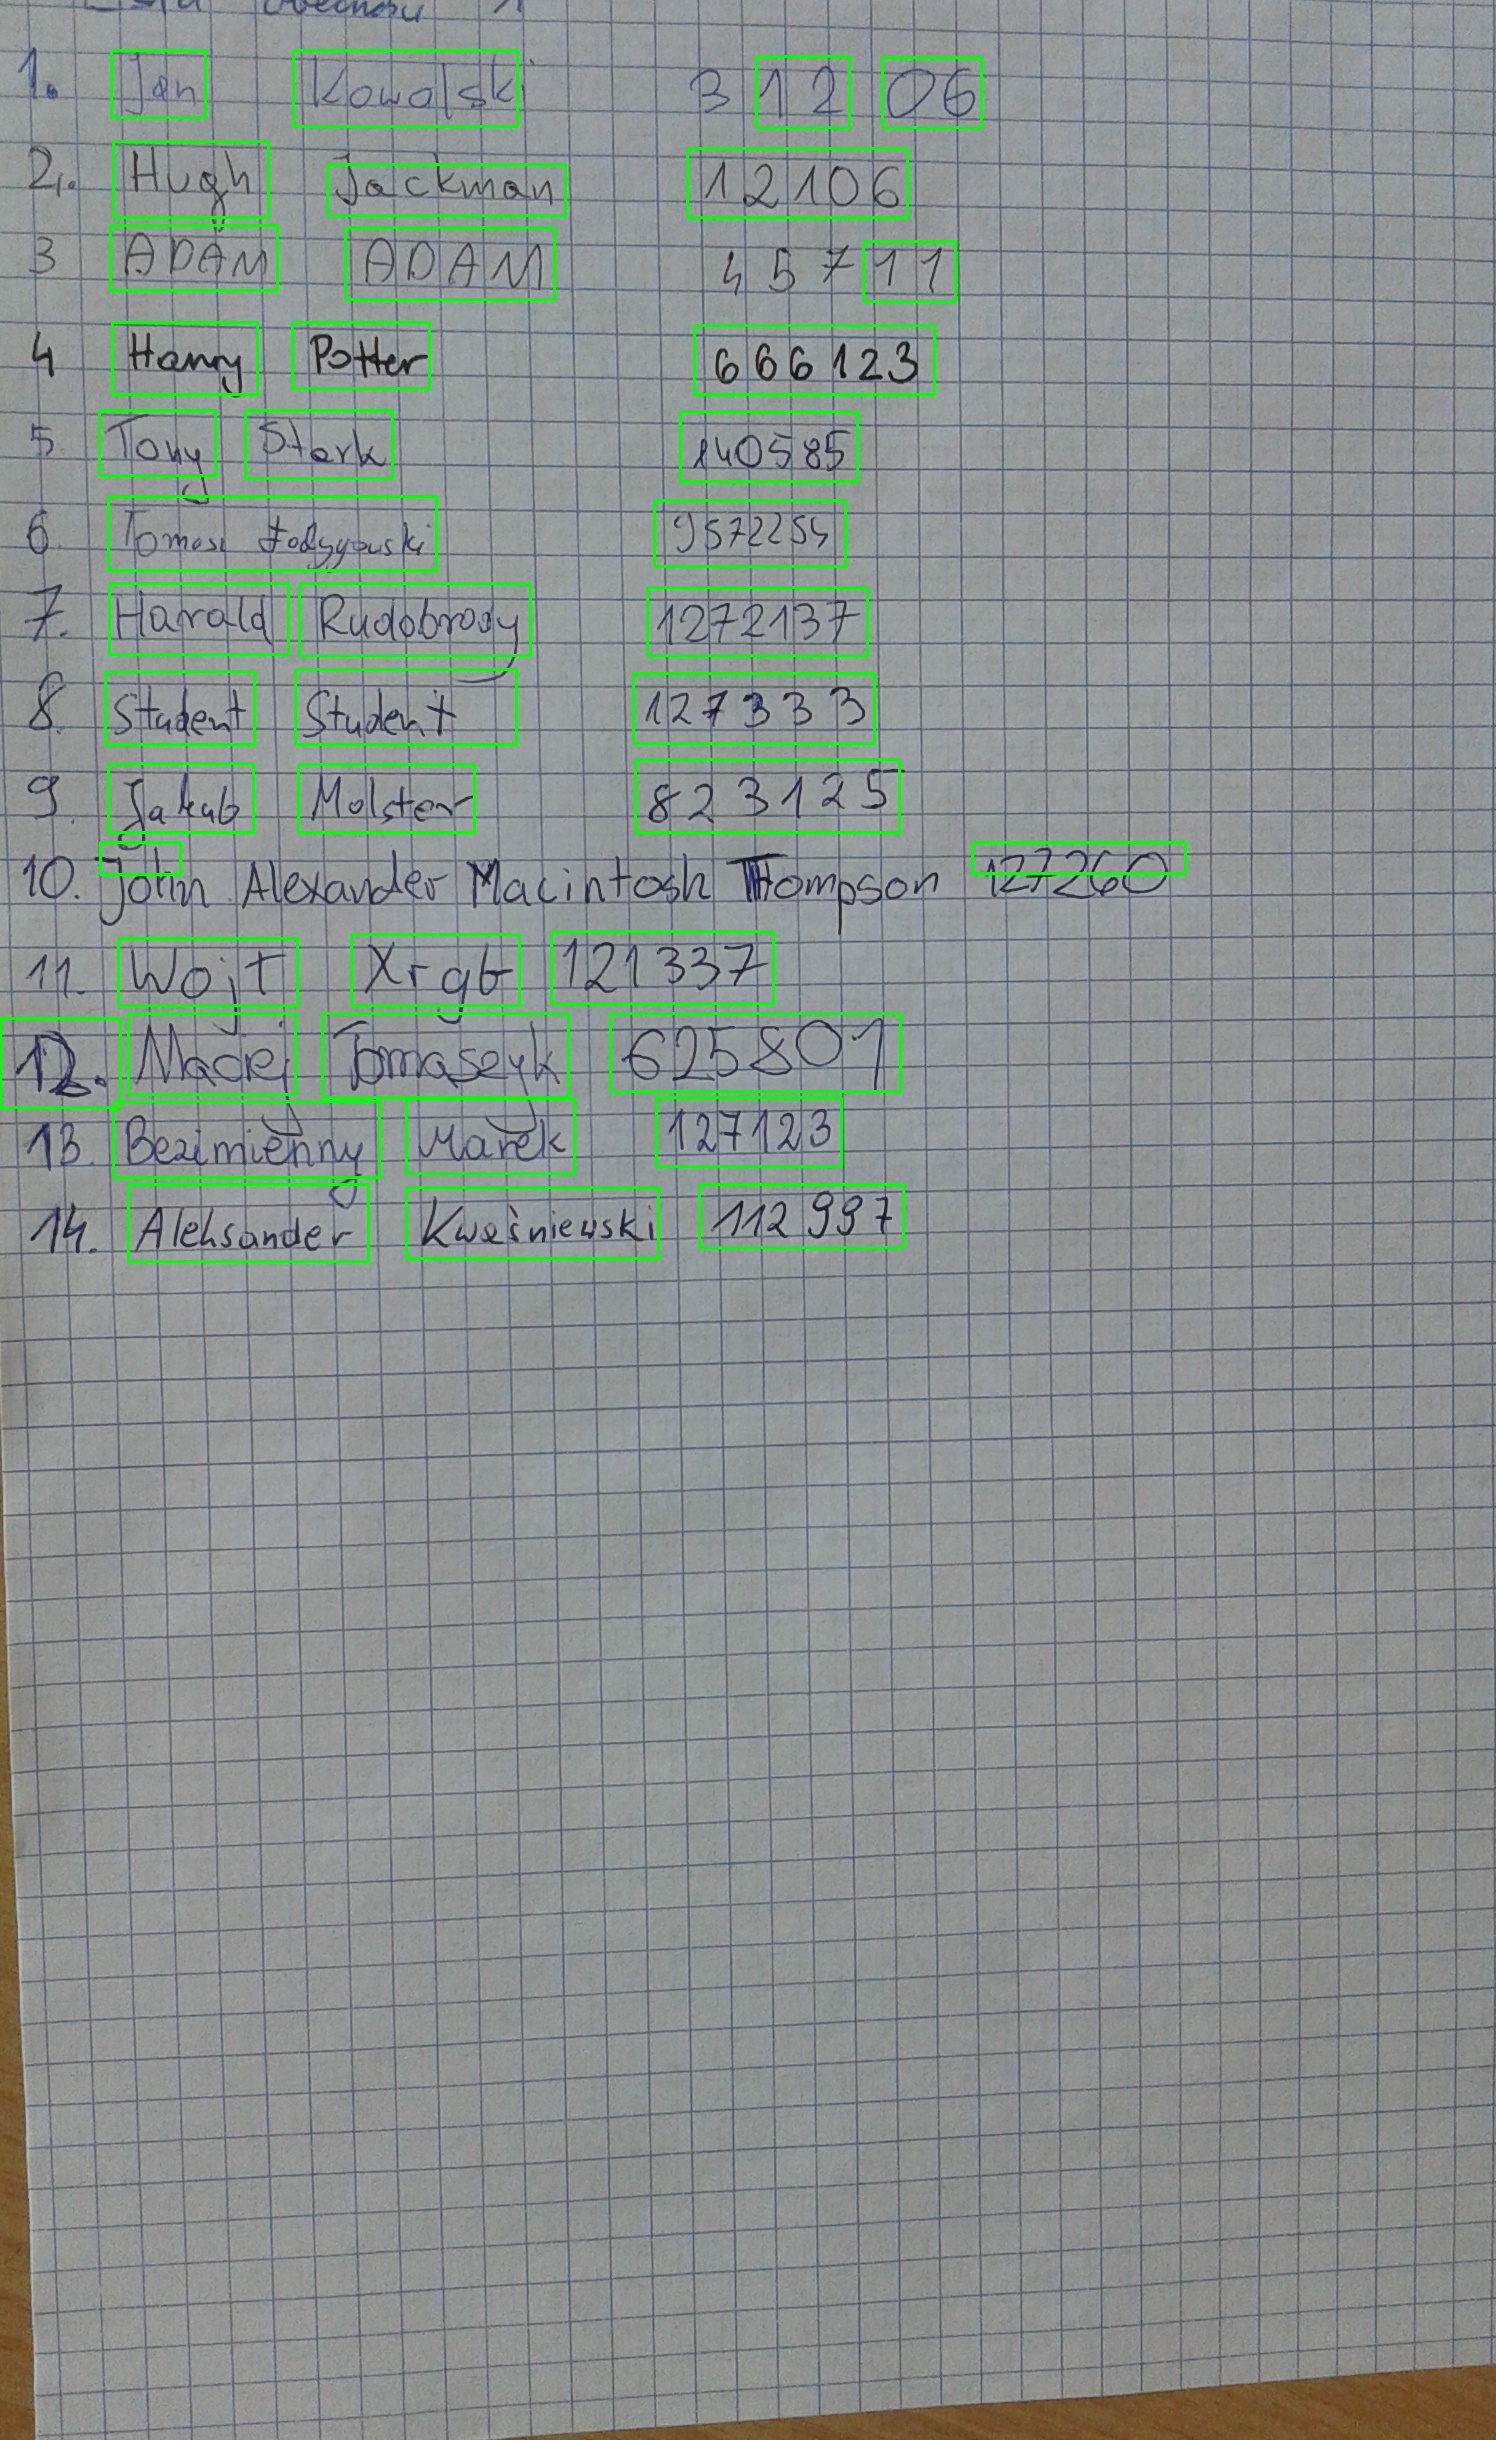 1. Jan Kowalski 3 12 06
2. Hugh Jackman 12106
3 ADAM ADAM 45711
4 Harry Potter 666123
5. Tony Stark 140585
6. Tomasz 9572254
7. Harald Rudobrody 1272137
8. Student Student 127333
9. Jakub Molster 823125
10. John Alexander Macintosh Thompson 127260
11. Wojt Xrgb 121337
12. Maciej Tomaszyk 625801
13. Bezimienny Marek 127123
14. Aleksander Kwaśniewski 112997